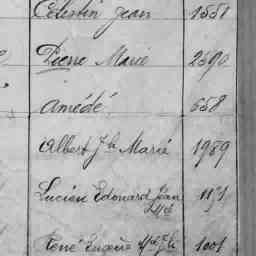 Célestin Jean 1551
Pierre Marie 2590
Amédé 658
Albert Jh Marie 1989
Lucien Edouard Jean
René Eugène 1001